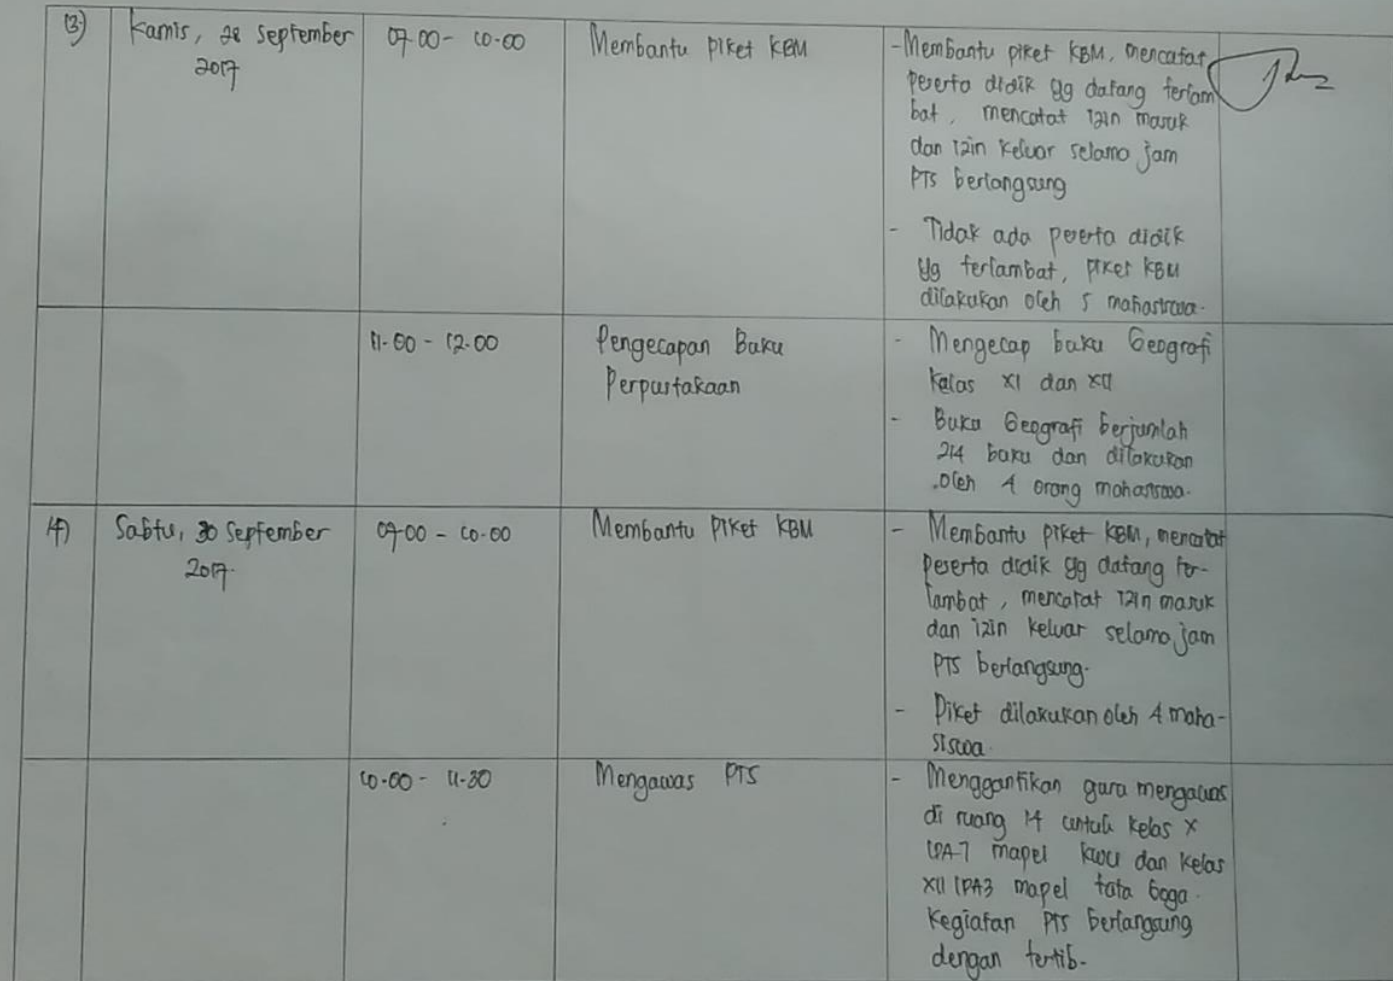 13) Kamis, 28 September 07.00 - 10.00 Membantu piket KBM - Membantu piket KBM, mencatat
2017 peserta didik yg datang terlam
bat, mencatat izin masuk
dan izin keluar selama jam
PTS berlangsung
- Tidak ada peserta didik
yg terlambat, piket KBM
dilakukan oleh 5 mahasiswa.
11.00 - 12.00 Pengecapan Buku - Mengecap buku Geografi
Perpustakaan Kelas XI dan XII
- Buku Geografi berjumlah
214 buku dan dilakukan
oleh 4 orang mahasiswa.
14) Sabtu, 30 September 07.00 - 10.00 Membantu Piket KBM - Membantu piket KBM, mencatat
2017. peserta didik yg datang ter-
lambat, mencatat izin masuk
dan izin keluar selama jam
PTS berlangsung.
- Piket dilakukan oleh 4 maha-
siswa.
10.00 - 11.30 Mengawas PTS - Menggantikan guru mengawas
di ruang 14 untuk kelas X
IPA-7 mapel kwu dan kelas
XII IPA3 mapel tata boga.
Kegiatan PTS berlangsung
dengan tertib.